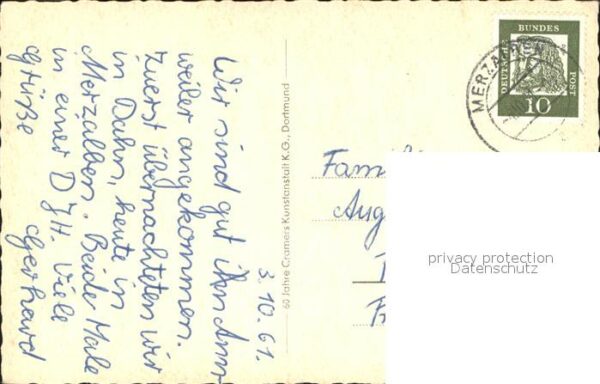 3.10.61.
Wir sind gut in Ann
weiler angekommen.
Zuerst übernachteten wir
in Dahn, heute in
Merzalben. Beide Male
in einer DJH. Viele
Grüße
Gerhard
60 Jahre Cramers Kunstanstalt K.G., Dortmund
DEUTSCHE BUNDES POST
10
MERZALBEN
Fami
Aug
privacy protection
Datenschutz